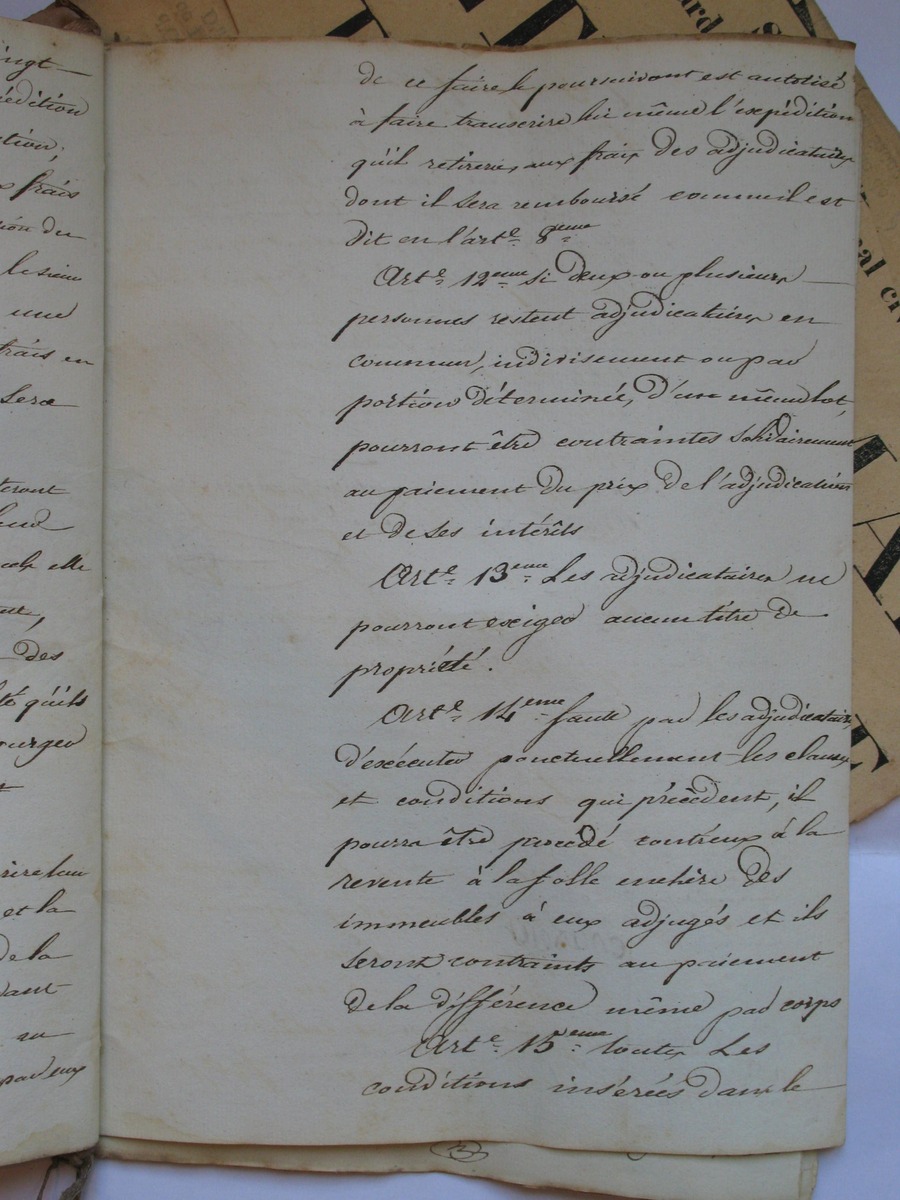 ingt
édition
ction;
x frais
ion du
le sieur
une
frais en
sera
elle
des
té qu'ils
purger
et la
de la
au
par eux
de ce faire le poursuivant est autolisé
à faire transcrire lui même l'expédition
qu'il retirera, aux fraix des adjudicataires
dont il sera remboursé comme il est
dit en l'arte. 8eme
Arte. 12eme Si deux ou plusieurs
personnes restent adjudicataires en
commun, indivisement ou par
portion déterminée, d'un même lot,
pourront être contraintes solidairement
au paiement du prix de l'adjudication
et de ses intérêts
Arte. 13eme Les adjudicataires ne
pourront exiger aucun titre de
propriété.
Arte. 14eme faute par les adjudicataires
d'exécuter ponctuellement les clauses
et conditions qui précèdent, il
pourra être procédé contr'eux à la
revente à la folle enchère des
immeubles à eux adjugés et ils
seront contraints au paiement
de la différence même par corps
Arte. 15eme toutes les
conditions insérées dans le
3